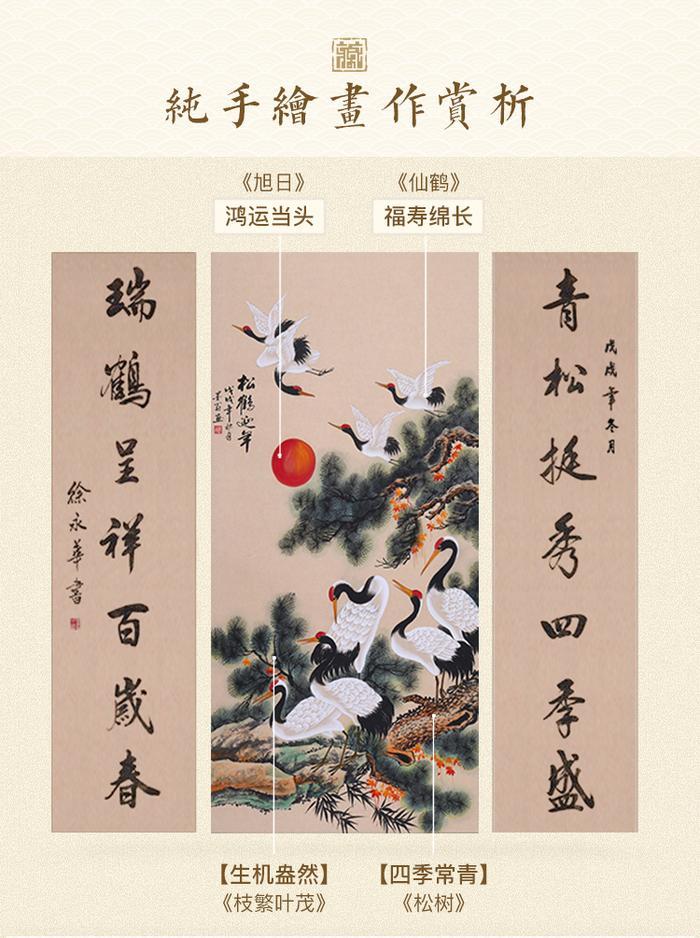 純手繪畫作賞析
《旭日》
鸿运当头
《仙鹤》
福寿绵长
青松挺秀四季盛
戊戌年冬月
松鶴延年
戊戌年
瑞鶴呈祥百歲春
徐永華書
【生机盎然】
《枝繁叶茂》
【四季常青】
《松树》